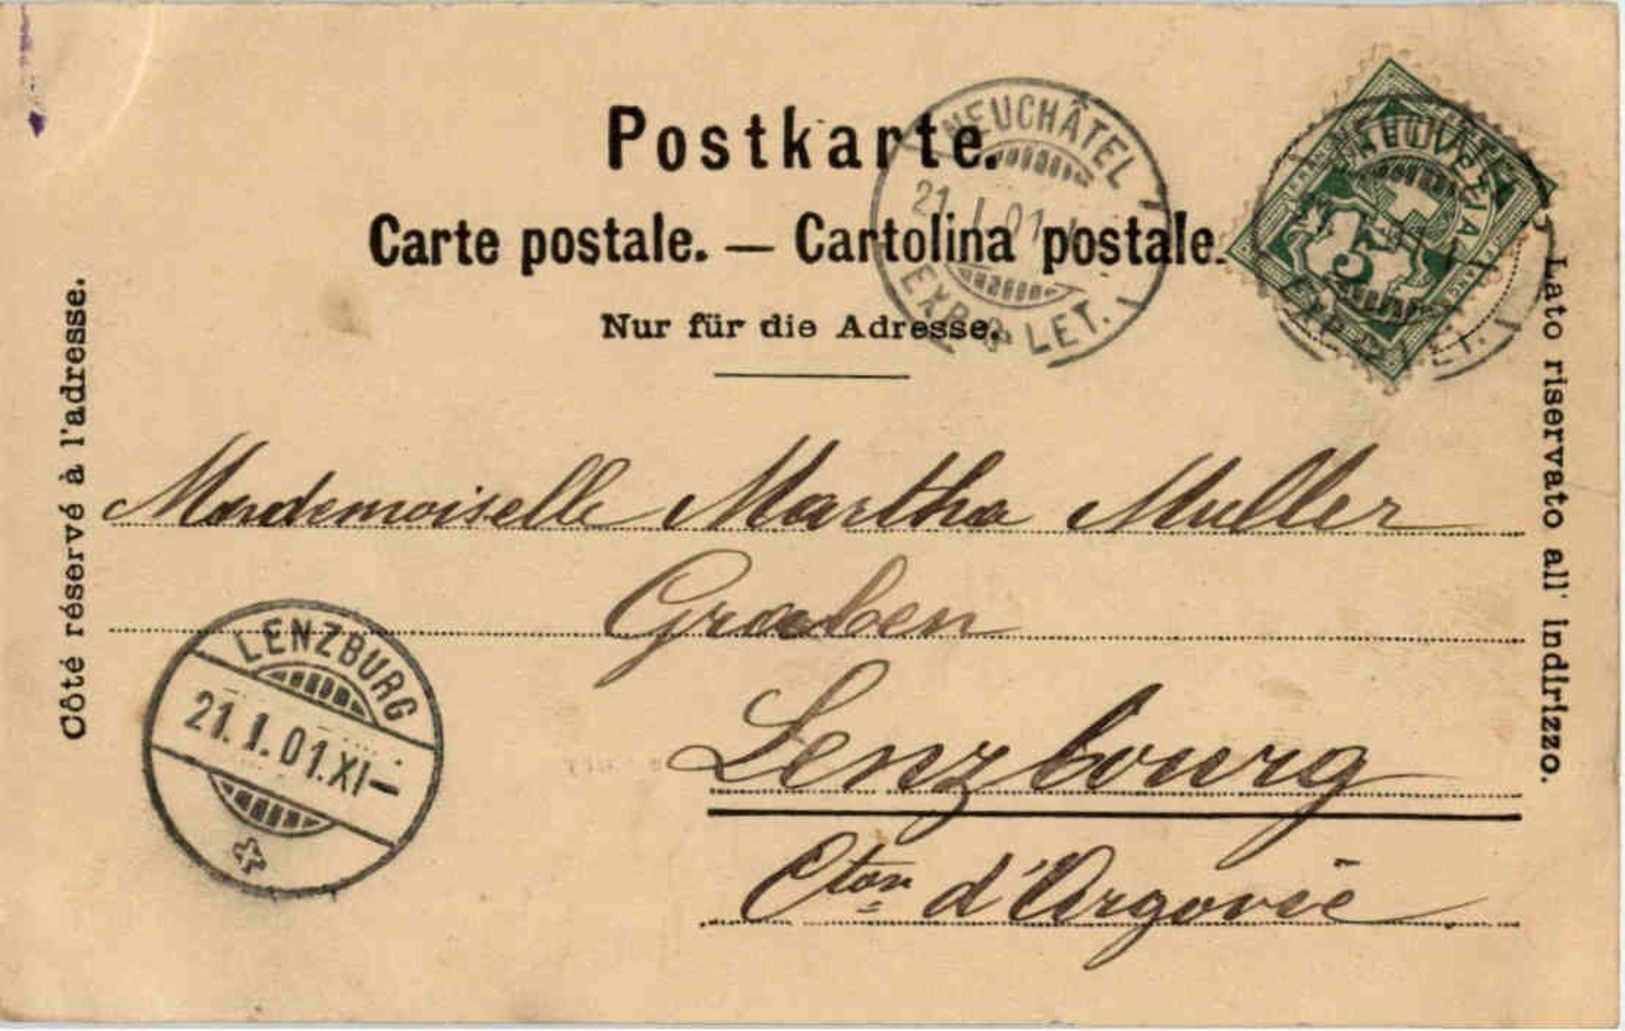 Postkarte.
Carte postale. — Cartolina postale.
Nur für die Adresse.
NEUCHÂTEL
21. I. 01
EXP. LET.
NEUCHÂTEL
EXP. LET.
5
Côté réservé à l'adresse.
Lato riservato all' indirizzo.
Mademoiselle Martha Muller
Graben
Lenzbourg
Cton d'Argovie
LENZBURG
21. I. 01. XI—